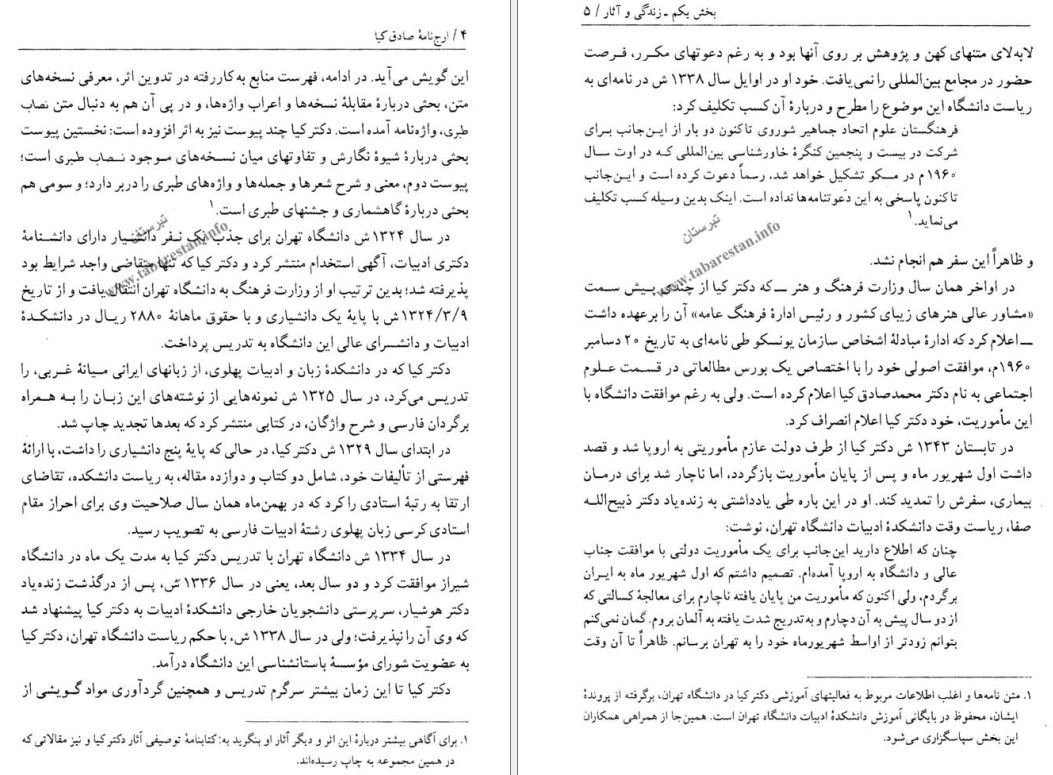 ۴ / ارج‌نامهٔ صادق کیا
این گویش می‌آید. در ادامه، فهرست منابع به‌کاررفته در تدوین اثر، معرفی نسخه‌های
متن، بحثی دربارهٔ مقابلهٔ نسخه‌ها و اعراب واژه‌ها، و در پی آن هم به دنبال متن نصاب
طبری، واژه‌نامه آمده است. دکتر کیا چند پیوست نیز به اثر افزوده است: نخستین پیوست
بحثی دربارهٔ شیوهٔ نگارش و تفاوتهای میان نسخه‌های موجود نصاب طبری است؛
پیوست دوم، معنی و شرح شعرها و جمله‌ها و واژه‌های طبری را دربر دارد؛ و سومی هم
بحثی دربارهٔ گاهشماری و جشنهای طبری است.۱
در سال ۱۳۲۴ ش دانشگاه تهران برای جذب یک نفر دانشیار دارای دانشنامهٔ
دکتری ادبیات، آگهی استخدام منتشر کرد و دکتر کیا که تنها متقاضی واجد شرایط بود
پذیرفته شد؛ بدین ترتیب او از وزارت فرهنگ به دانشگاه تهران انتقال یافت و از تاریخ
۱۳۲۴/۳/۹ش با پایهٔ یک دانشیاری و با حقوق ماهانهٔ ۲۸۸۰ ریال در دانشکدهٔ
ادبیات و دانشسرای عالی این دانشگاه به تدریس پرداخت.
دکتر کیا که در دانشکدهٔ زبان و ادبیات پهلوی، از زبانهای ایرانی میانهٔ غربی، را
تدریس می‌کرد، در سال ۱۳۲۵ ش نمونه‌هایی از نوشته‌های این زبان را به همراه
برگردان فارسی و شرح واژگان، در کتابی منتشر کرد که بعدها تجدید چاپ شد.
در ابتدای سال ۱۳۲۹ ش دکتر کیا، در حالی که پایهٔ پنج دانشیاری را داشت، با ارائهٔ
فهرستی از تألیفات خود، شامل دو کتاب و دوازده مقاله، به ریاست دانشکده، تقاضای
ارتقا به رتبهٔ استادی را کرد که در بهمن‌ماه همان سال صلاحیت وی برای احراز مقام
استادی کرسی زبان پهلوی رشتهٔ ادبیات فارسی به تصویب رسید.
در سال ۱۳۳۴ ش دانشگاه تهران با تدریس دکتر کیا به مدت یک ماه در دانشگاه
شیراز موافقت کرد و دو سال بعد، یعنی در سال ۱۳۳۶ ش، پس از درگذشت زنده‌یاد
دکتر هوشیار، سرپرستی دانشجویان خارجی دانشکدهٔ ادبیات به دکتر کیا پیشنهاد شد
که وی آن را نپذیرفت؛ ولی در سال ۱۳۳۸ ش، با حکم ریاست دانشگاه تهران، دکتر کیا
به عضویت شورای مؤسسهٔ باستانشناسی این دانشگاه درآمد.
دکتر کیا تا این زمان بیشتر سرگرم تدریس و همچنین گردآوری مواد گویشی از
۱. برای آگاهی بیشتر دربارهٔ این اثر و دیگر آثار او بنگرید به: کتابنامهٔ توصیفی آثار دکتر کیا و نیز مقالاتی که
در همین مجموعه به چاپ رسیده‌اند.
تبرستان
www.tabarestan.info
بخش یکم ـ زندگی و آثار / ۵
لابه‌لای متنهای کهن و پژوهش بر روی آنها بود و به رغم دعوتهای مکرر، فرصت
حضور در مجامع بین‌المللی را نمی‌یافت. خود او در اوایل سال ۱۳۳۸ ش در نامه‌ای به
ریاست دانشگاه این موضوع را مطرح و دربارهٔ آن کسب تکلیف کرد:
فرهنگستان علوم اتحاد جماهیر شوروی تاکنون دو بار از این‌جانب برای
شرکت در بیست و پنجمین کنگرهٔ خاورشناسی بین‌المللی که در اوت سال
۱۹۶۰ م در مسکو تشکیل خواهد شد، رسماً دعوت کرده است و این‌جانب
تاکنون پاسخی به این دعوتنامه‌ها نداده است. اینک بدین وسیله کسب تکلیف
می‌نماید.۱
و ظاهراً این سفر هم انجام نشد.
در اواخر همان سال وزارت فرهنگ و هنر ــ که دکتر کیا از چندی پیش سمت
«مشاور عالی هنرهای زیبای کشور و رئیس ادارهٔ فرهنگ عامه» آن را برعهده داشت
ــ اعلام کرد که ادارهٔ مبادلهٔ اشخاص سازمان یونسکو طی نامه‌ای به تاریخ ۲۰ دسامبر
۱۹۶۰م، موافقت اصولی خود را با اختصاص یک بورس مطالعاتی در قسمت علوم
اجتماعی به نام دکتر محمدصادق کیا اعلام کرده است. ولی به رغم موافقت دانشگاه با
این مأموریت، خود دکتر کیا اعلام انصراف کرد.
در تابستان ۱۳۴۳ ش دکتر کیا از طرف دولت عازم مأموریتی به اروپا شد و قصد
داشت اول شهریور ماه و پس از پایان مأموریت بازگردد، اما ناچار شد برای درمان
بیماری، سفرش را تمدید کند. او در این باره طی یادداشتی به زنده‌یاد دکتر ذبیح‌الله
صفا، ریاست وقت دانشکدهٔ ادبیات دانشگاه تهران، نوشت:
چنان که اطلاع دارید این‌جانب برای یک مأموریت دولتی با موافقت جناب
عالی و دانشگاه به اروپا آمده‌ام. تصمیم داشتم که اول شهریور ماه به ایران
برگردم، ولی اکنون که مأموریت من پایان یافته ناچارم برای معالجهٔ کسالتی که
از دو سال پیش به آن دچارم و به‌تدریج شدت یافته به آلمان بروم. گمان نمی‌کنم
بتوانم زودتر از اواسط شهریورماه خود را به تهران برسانم. ظاهراً تا آن وقت
۱. متن نامه‌ها و اغلب اطلاعات مربوط به فعالیتهای آموزشی دکتر کیا در دانشگاه تهران، برگرفته از پروندهٔ
ایشان، محفوظ در بایگانی آموزش دانشکدهٔ ادبیات دانشگاه تهران است. همین‌جا از همراهی همکاران
این بخش سپاسگزاری می‌شود.
تبرستان
www.tabarestan.info